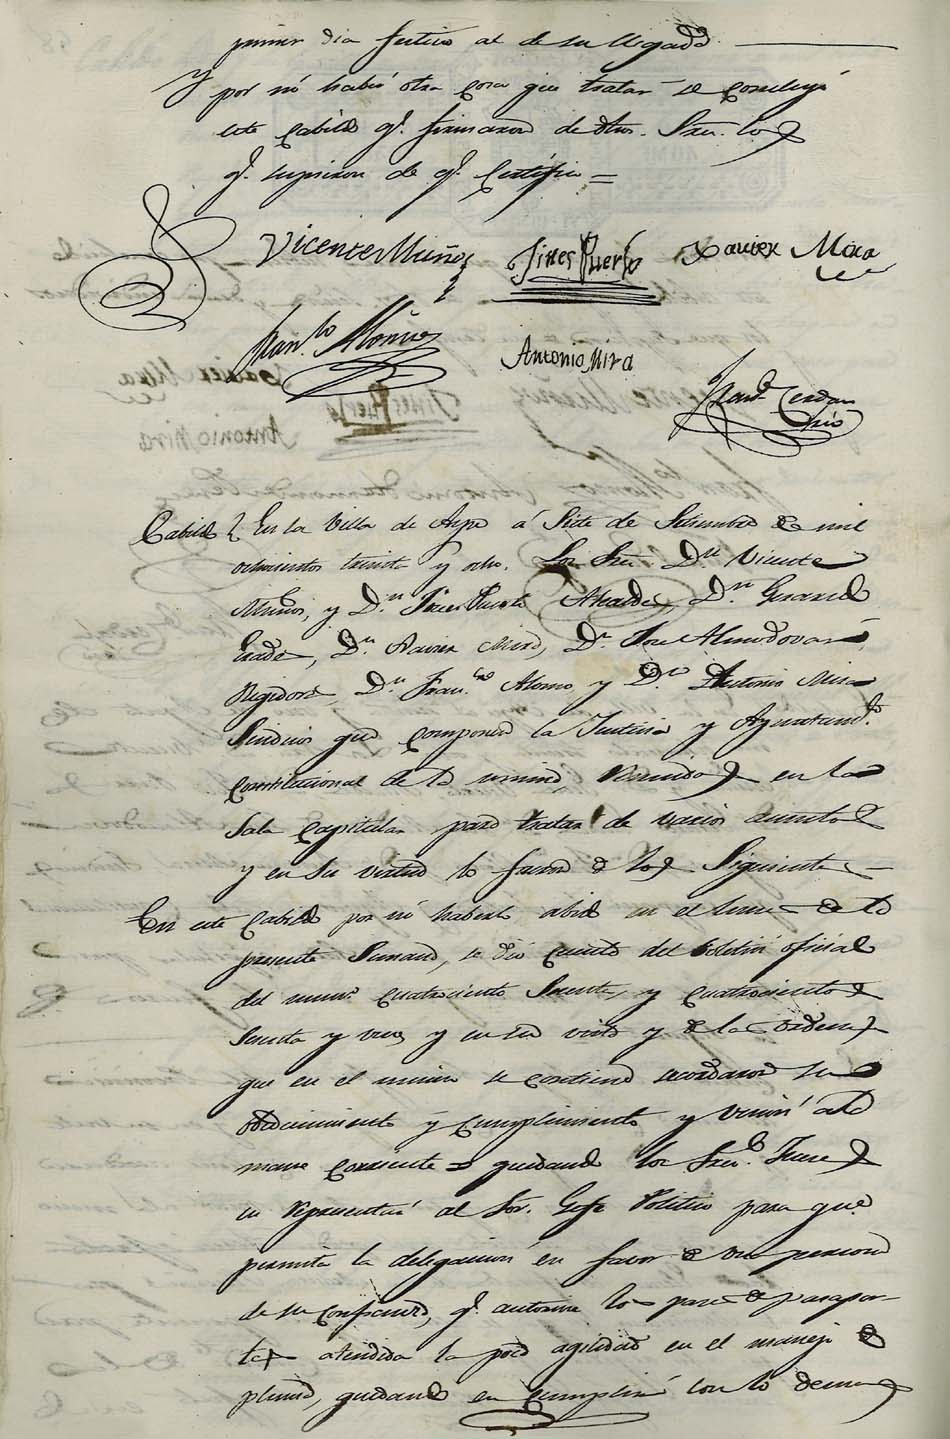 primer dia festivo al de su llegada.
Y por no haber otra cosa que tratar se concluyó
este Cabildo q.e firmaron dchos. Sres. los
q.e supieron de q.e Certifico =
Vicente Muñoz Jines Puerto Xavier Mira
Fran.co Alonso Antonio Mira
Fran.co Cerdan
Cabildo En la Villa de Aspe á Siete de Setiembre de mil
ochocientos treinta y ocho. Los Sres D.n Vicente
Muñoz, y D.n Jines Puerto Alcaldes, D.n Gerardo
D.n Xavier Mira, D.n Jose Almodovar
Regidores, D.n Fran.co Alonso y D.n Antonio Mira
Sindicos que componen la Justicia y Ayuntam.to
Constitucional de la misma, Reunidos en la
Sala Capitular para tratar de varios asuntos
y en su virtud lo fueron de los Siguientes
En este Cabildo por no haberlo abido en el lunes de la
presente Semana, se dió cuenta del boletin oficial
del num.o cuatrocientos Sesenta, y cuatrocientos
sesenta y uno y en su vista y de las ordenes
que en el mismo se contiene acordaron su
obedecimiento y cumplimiento y union á la
mano corriente = quedando los Sres. Jueces
en representar al Sor. Gefe Politico para que
permita la delegacion en favor de una persona
de su confianza, q.e autorize los pases de pasapor-
tes atendida la poca agilidad en el manejo de
pluma, quedando en cumplir con lo demas